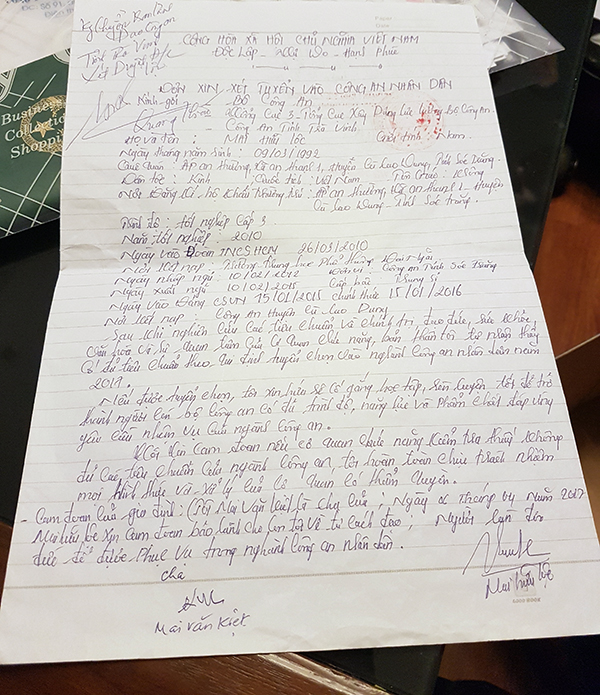 Kg Chuyển Ban
Tỉnh Trà Vinh
Xét Duyệt
CỘNG HÒA XÃ HỘI CHỦ NGHĨA VIỆT NAM
Độc Lập Tự Do Hạnh Phúc
ĐƠN XIN XÉT TUYỂN VÀO CÔNG AN NHÂN DÂN
Kính gởi
Bộ Công An
Cục 3 Tổng Cục Xây Dựng Lực Lượng Bộ Công An
Công An Tỉnh Trà Vinh
Họ và tên: MAI HỮU LỘC Giới tính: Nam
Ngày tháng năm sinh: 09/03/1992
Quê quán: Ấp An Thường, Xã An Thạnh 1, Huyện Cù Lao Dung, Tỉnh Sóc Trăng
Dân tộc: Kinh Quốc tịch: Việt Nam Tôn Giáo: Không
Nơi Đăng Kí hộ khẩu thường trú: Ấp An Thường, Xã An Thạnh 1 Huyện
Cù Lao Dung Tỉnh Sóc Trăng.
Trình độ: tốt nghiệp Cấp 3
Năm tốt nghiệp: 2010
Ngày vào Đoàn TNCSHCM 26/03/2010
Nơi kết nạp: Trường Trung học Phổ thông Đoàn Văn
Ngày nhập ngũ: 01/02/2012 Đơn vị: Công An Tỉnh Sóc Trăng
Ngày xuất ngũ: 10/02/2015 Cấp bậc: Trung sĩ
Ngày vào Đảng CSVN 15/01/2015 Chính thức 15/01/2016
Nơi kết nạp: Công An Huyện Cù Lao Dung
Sau khi nghiên cứu các tiêu chuẩn về chính trị, đạo đức, sức khỏe,
văn hóa và sự quan tâm của Cơ Quan chức năng, bản thân tôi tự nhận thấy
có đủ tiêu chuẩn theo qui định tuyển chọn vào nghành Công an nhân dân năm
2017.
Nếu được tuyển chọn, tôi xin hứa sẽ cố gắng học tập, rèn luyện tốt để trở
thành người cán bộ công an có đủ trình độ, năng lực và Phẩm chất đáp ứng
yêu cầu nhiệm vụ của ngành công an.
Tôi xin cam đoan nếu cơ quan chức năng kiểm tra thấy không
đủ các tiêu chuẩn của ngành công an, tôi hoàn toàn chịu trách nhiệm
mọi hình thức và xử lý của cơ quan có thẩm quyền.
- Cam đoan của gia đình: (Tôi Mai Văn Kiệt) là cha của: Ngày 01 Tháng 04 Năm 2017
Mai Hữu Lộc xin cam đoan bảo lãnh cho con tôi về tư cách đạo; Người làm đơn
đức để được phục vụ trong nghành công an nhân dân.
cha
Mai Văn Kiệt
Mai Hữu Lộc
Business
Collection
Shopping